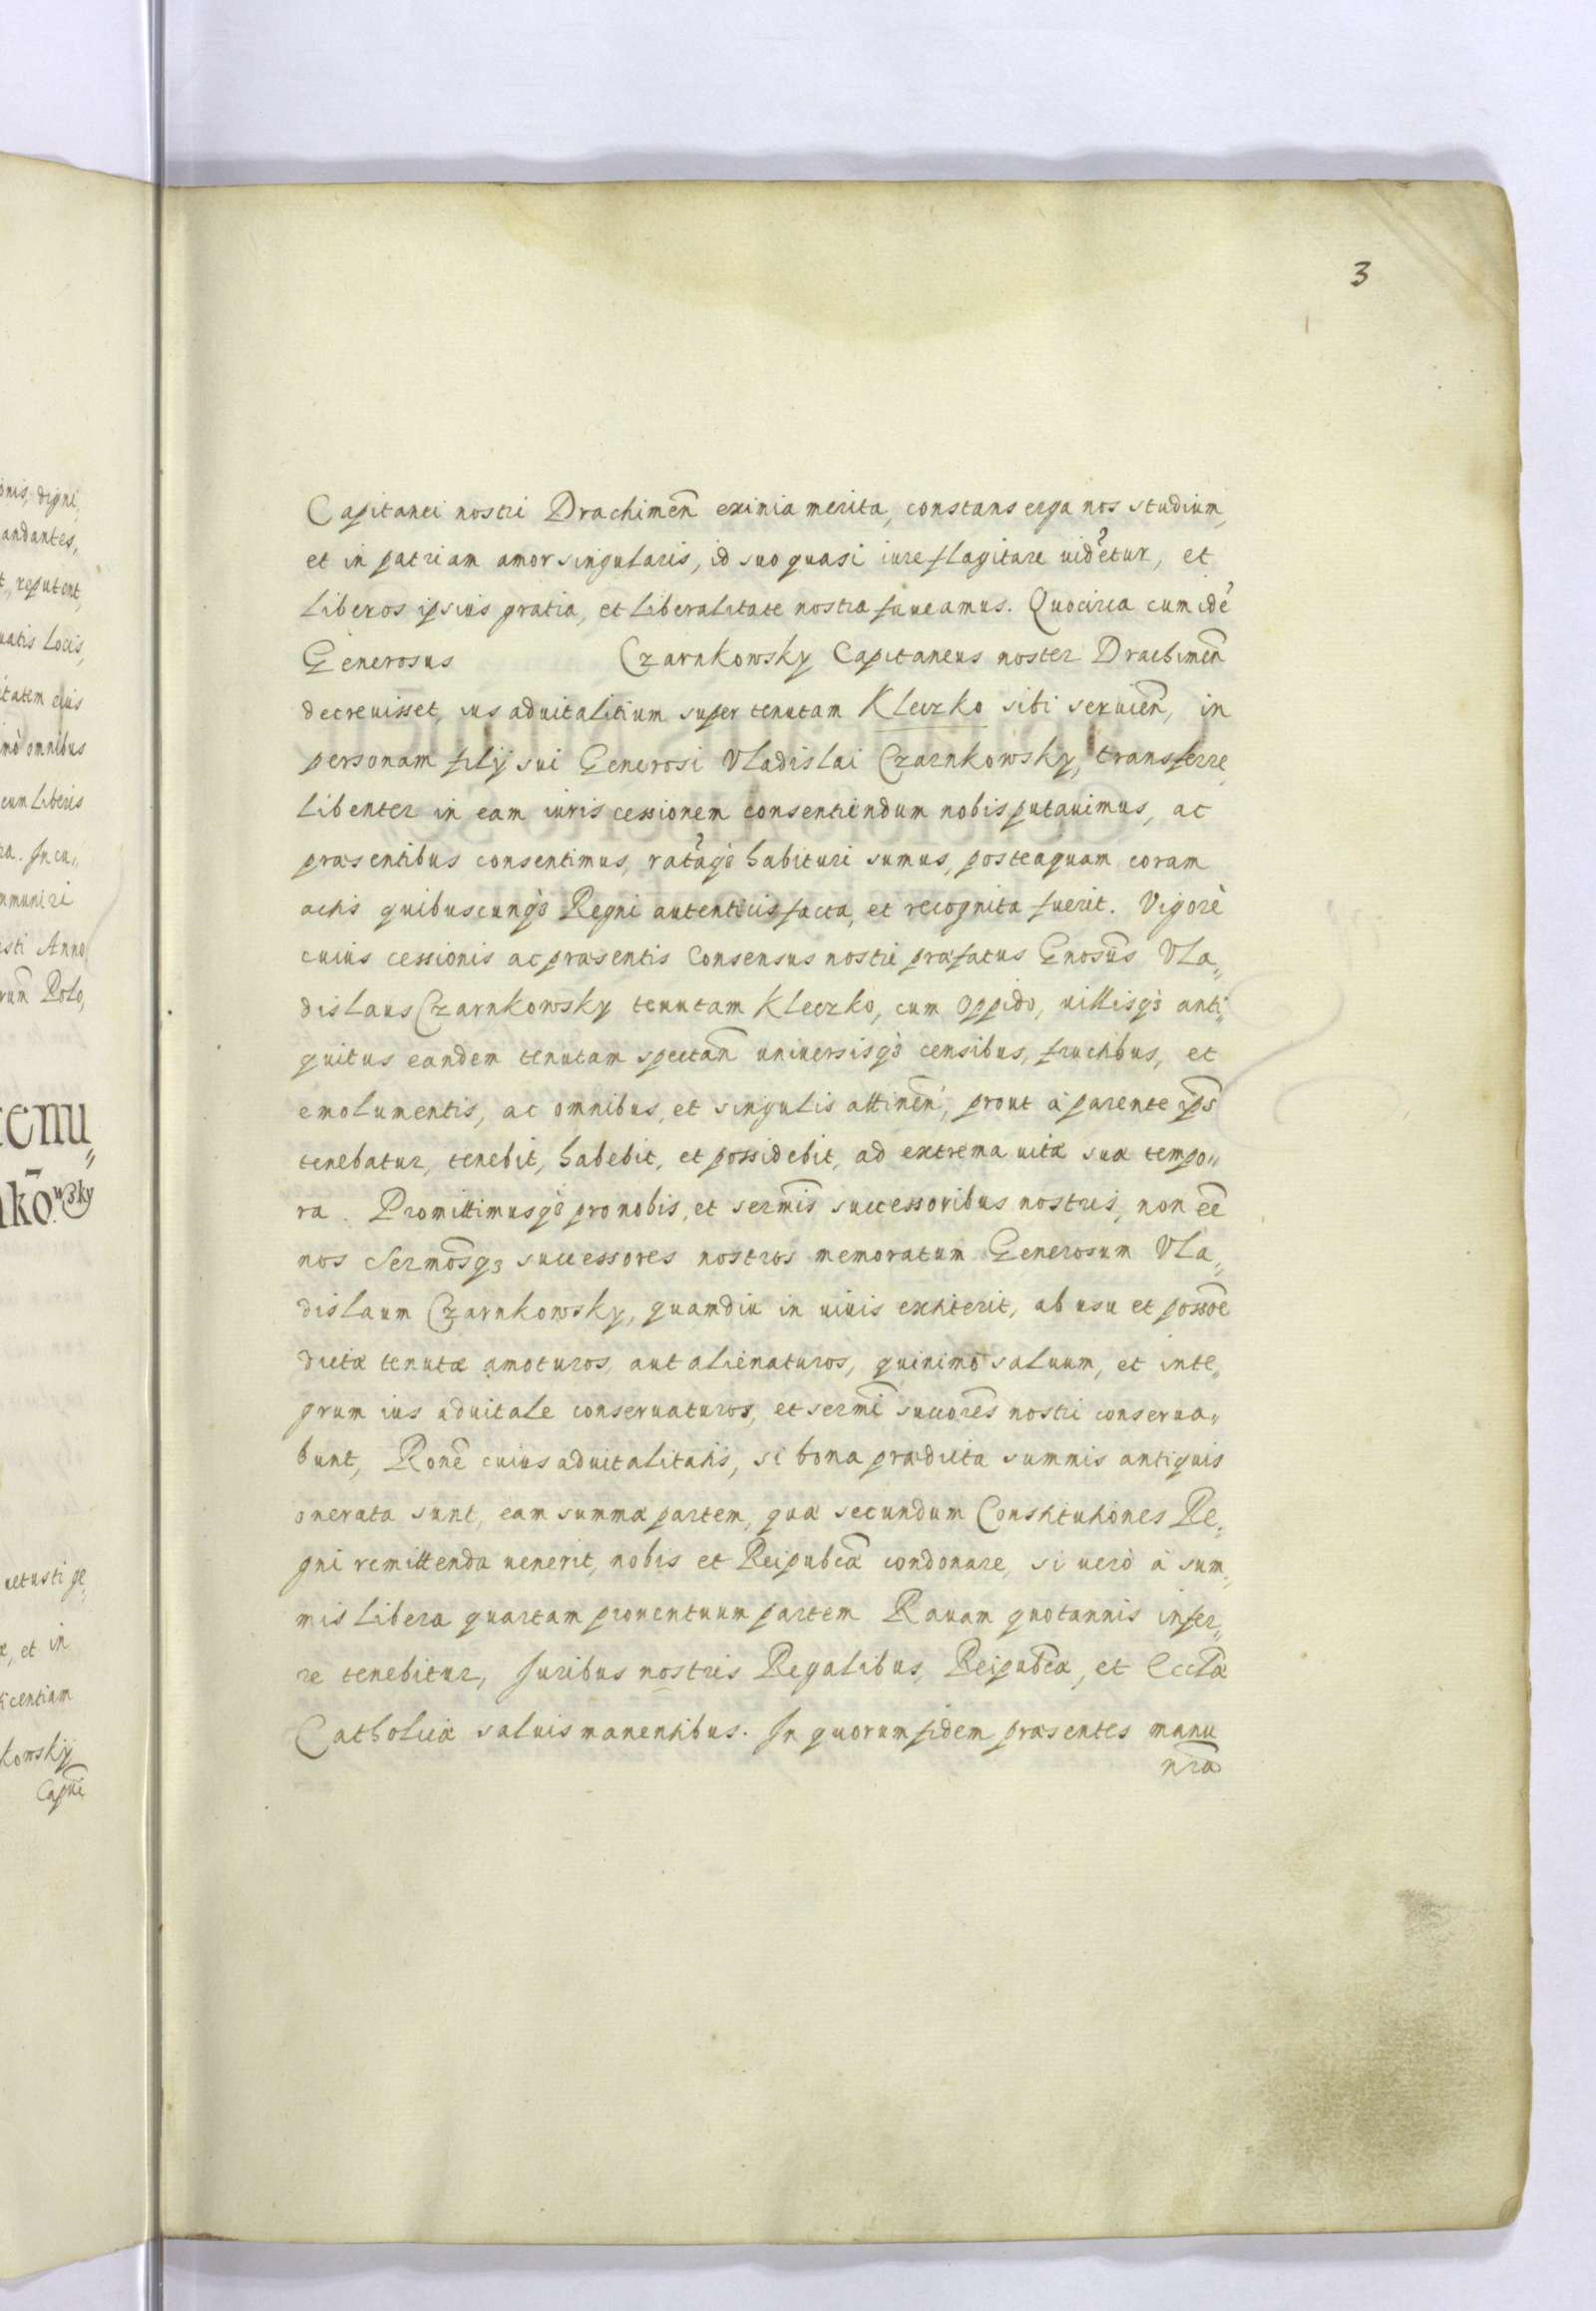 3
Capitanei nostri Drachimen̄ eximia merita, constans erga nos studium,
et in patriam amor singularis, id suo quasi iure flagitare uidetur, et
liberos ipsius gratia, et liberalitate nostra faueamus. Quocirca cum idē
Generosus Czarnkowsky Capitaneus noster Drachimen̄
decreuisset, ius aduitalitium super tenutam Kleczko sibi seruien̄, in
personam filij sui Generosi Vladislai Czarnkowsky, transferre,
libenter in eam iuris cessionem consentiendum nobis putauimus, ac
præsentibus consentimus, ratāqȝ habituri sumus, posteaquam coram
actis quibuscunqȝ Regni autenticis facta, et recognita fuerit. Vigorè
cuius cessionis ac præsentis Consensus nostri præfatus Gnosūs Vla„
dislaus Czarnkowsky tenutam Kleczko, cum oppido, uillisqȝ anti„
quitus eandem tenutam spectan̄ uniuersisqȝ censibus, fructibus, et
emolumentis, ac omnibus, et singulis attinen̄, prout à parente ips̄
tenebatur, tenebit, habebit, et possidebit, ad extrema uitæ suæ tempo„
ra. Promittimusqȝ pro nobis, et sermīs successoribus nostris, non eē
nos Sermōsqȝ successores nostros memoratum Generosum Vla„
dislaum Czarnkowsky, quamdiu in uiuis extiterit, ab usu et possōe
dictæ tenutæ amoturos, aut alienaturos, quinimò saluum, et inte„
grum ius aduitale conseruaturos, et sermī succorēs nostri conserua„
bunt, Ronē cuius aduitalitatis, si bona prædicta summis antiquis
onerata sunt, eam summæ partem, quæ secundum Constitutiones Re„
gni remittenda uenerit, nobis et Reipubcǣ condonare, si uerò à sum„
mis libera quartam prouentuum partem Rauam quotannis infer„
re tenebitur, Juribus nostris Regalibus, Reipubcǣ, et Ecclǣ
Catholicæ saluis manentibus. In quorum fidem præsentes manu
nr̄a